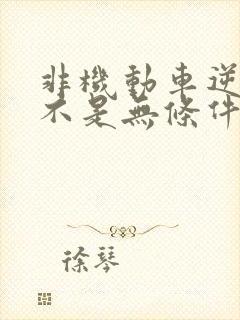 非機動車逆
不是無條件
徐琴